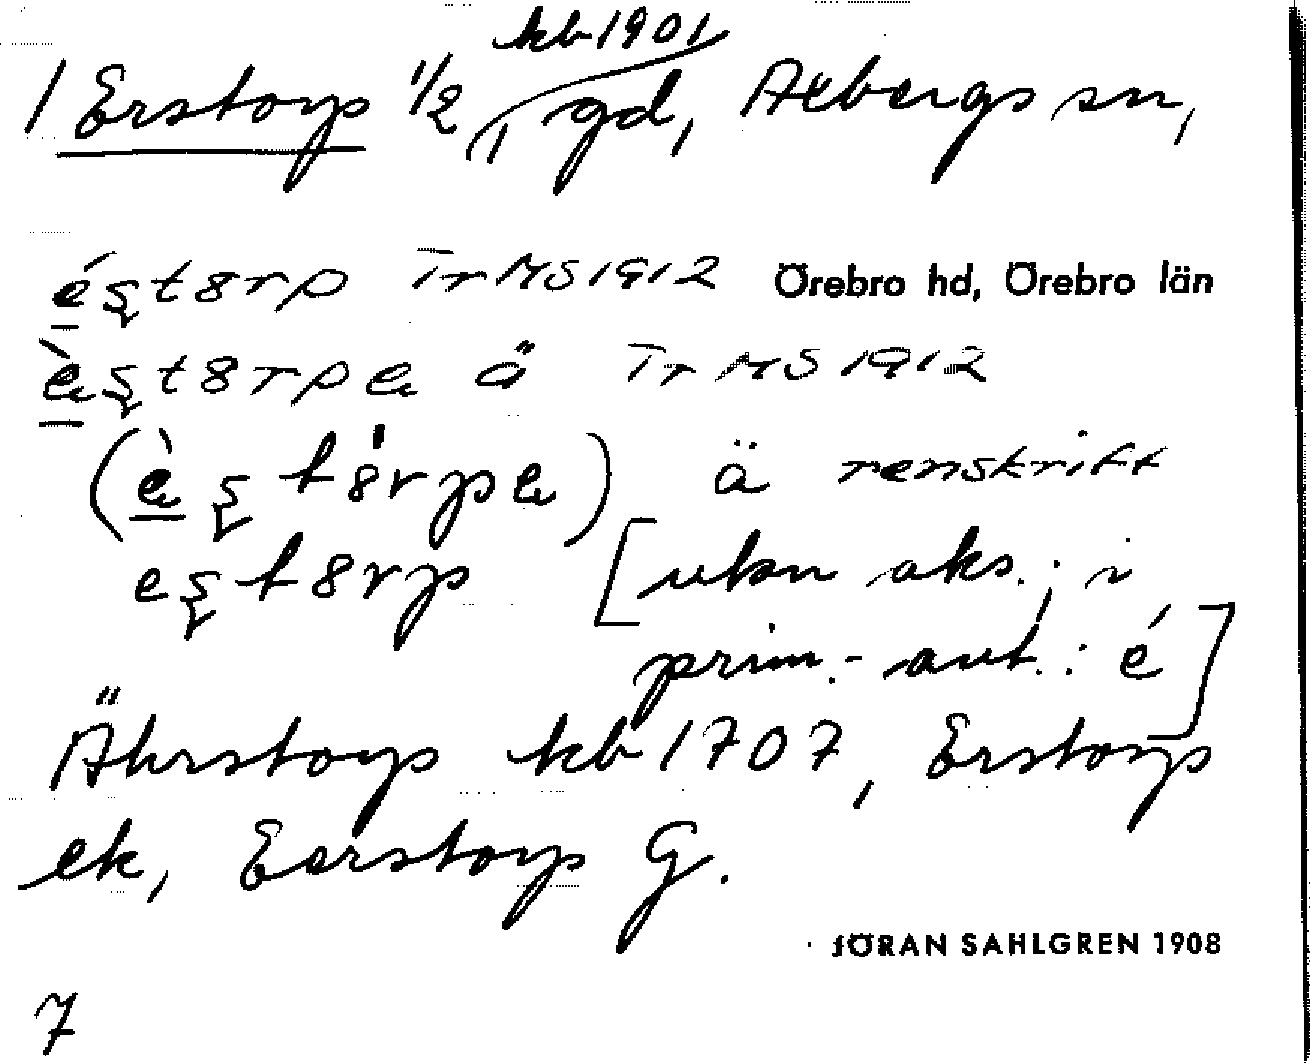 kb 1901
1 Erstorp 1/2, gd, Axbergs sn,
éʂt8rp TrMS1912 Örebro hd, Örebro län
èʂt8rpe ä TrMS1912
(èʂt8rpe) ä renskrift
eʂt8rp [utan aks.; i
prim.-ant.: é]
Ährstorp kb 1707, Erstorp
ek, Eerstorp G.
JÖRAN SAHLGREN 1908
7